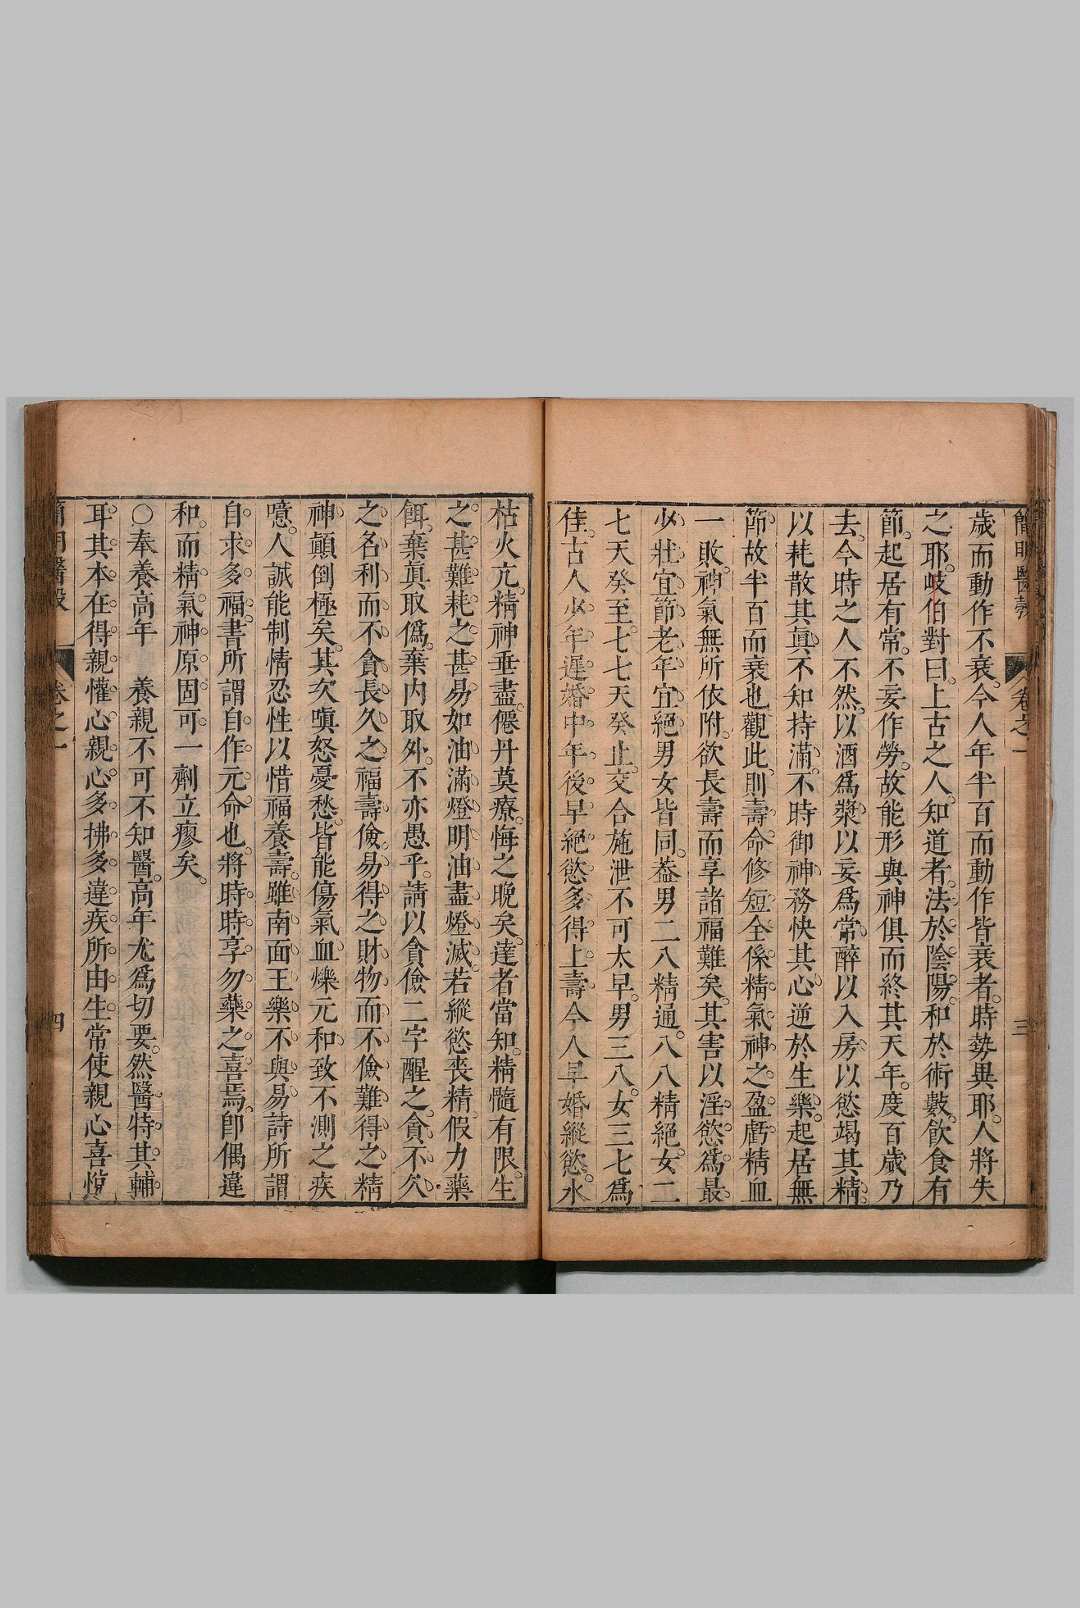 簡明醫彀 卷之一 三
歲而動作不衰。今人年半百而動作皆衰者。時勢異耶。人將失
之耶。岐伯對曰。上古之人。知道者。法於陰陽。和於術數。飲食有
節。起居有常。不妄作勞。故能形與神俱。而終其天年。度百歲乃
去。今時之人不然。以酒爲漿。以妄爲常。醉以入房。以慾竭其精。
以耗散其眞。不知持滿。不時御神。務快其心。逆於生樂。起居無
節。故半百而衰也。觀此。則壽命修短。全係精氣神之盈虧。精血
一敗。神氣無所依附。欲長壽而享諸福難矣。其害以淫慾爲最。
少壯宜節。老年宜絕。男女皆同。葢男二八精通。八八精絕。女二
七天癸至。七七天癸止。交合施泄不可太早。男三八。女三七爲
佳。古人少年遲婚。中年後早絕慾。多得上壽。今人早婚縱慾。水
枯火亢。精神垂盡。僊丹莫療。悔之晚矣。達者當知精髓有限。生
之甚難。耗之甚易。如油滿燈明。油盡燈滅。若縱慾喪精。假力藥
餌。棄眞取僞。棄內取外。不亦愚乎。請以貪儉二字醒之。貪不久
之名利。而不貪長久之福壽。儉易得之財物。而不儉難得之精
神。顚倒極矣。其次嗔怒憂愁。皆能傷氣血。爍元和。致不測之疾
噫。人誠能制情忍性。以惜福養壽。雖南面王樂不與易。詩所謂
自求多福。書所謂自作元命也。將時時享勿藥之喜焉。卽偶違
和。而精氣神原固。可一劑立瘳矣。
○奉養高年 養親不可不知醫。高年尤爲切要。然醫特其輔
耳。其本在得親懽心。親心多拂多違。疾所由生。常使親心喜悅
簡明醫彀 卷之一 四